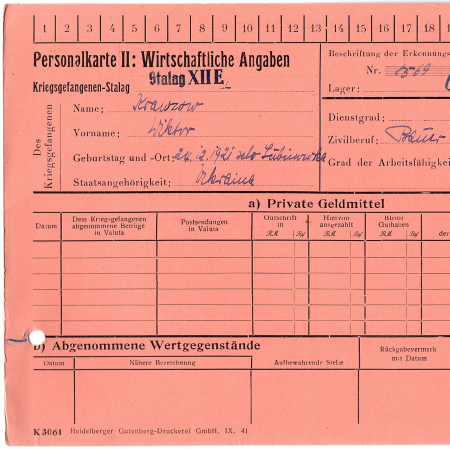 1 2 3 4 5 6 7 8 9 10 11 12 13 14 15 16 17 18
Personalkarte II: Wirtschaftliche Angaben
Kriegsgefangenen-Stalag Stalag XII E
Beschriftung der Erkennungs
Nr.
Lager:
Des Kriegsgefangenen
Name: Krawzow
Vorname: Wiktor
Geburtstag und -Ort: 1921 selo
Staatsangehörigkeit: Ukraina
Dienstgrad:
Zivilberuf: Bauer
Grad der Arbeitsfähigkei
a) Private Geldmittel
Datum
Dem Kriegsgefangenen abgenommene Beträge in Valuta
Postsendungen in Valuta
Gutschrift in
RM. Rpf
Hiervon ausgezahlt
RM. Rpf
Bleibt Guthaben
RM. Rpf
der
b) Abgenommene Wertgegenstände
Datum
Nähere Bezeichnung
Aufbewahrende Stelle
Rückgabevermerk mit Datum
K 3061 Heidelberger Gutenberg-Druckerei GmbH. IX. 41